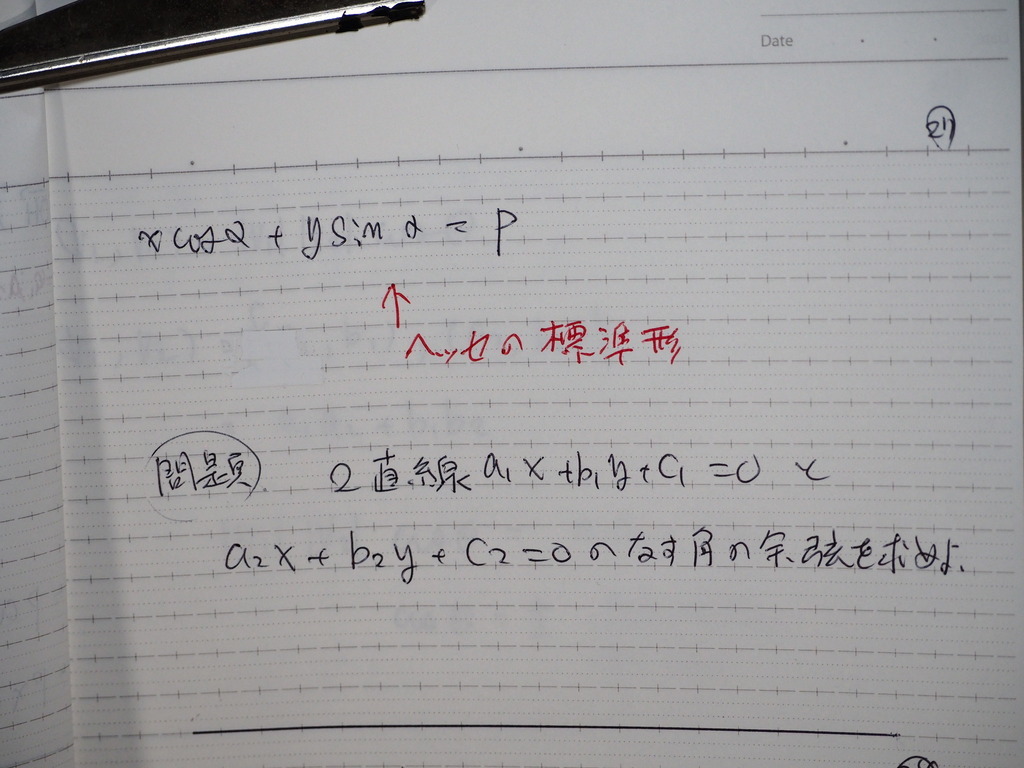 Date
21
x cos α + y sin α = p
↑
ヘッセの標準形
問題 2直線 a₁x + b₁y + c₁ = 0 と
a₂x + b₂y + c₂ = 0 のなす角の余弦を求めよ.